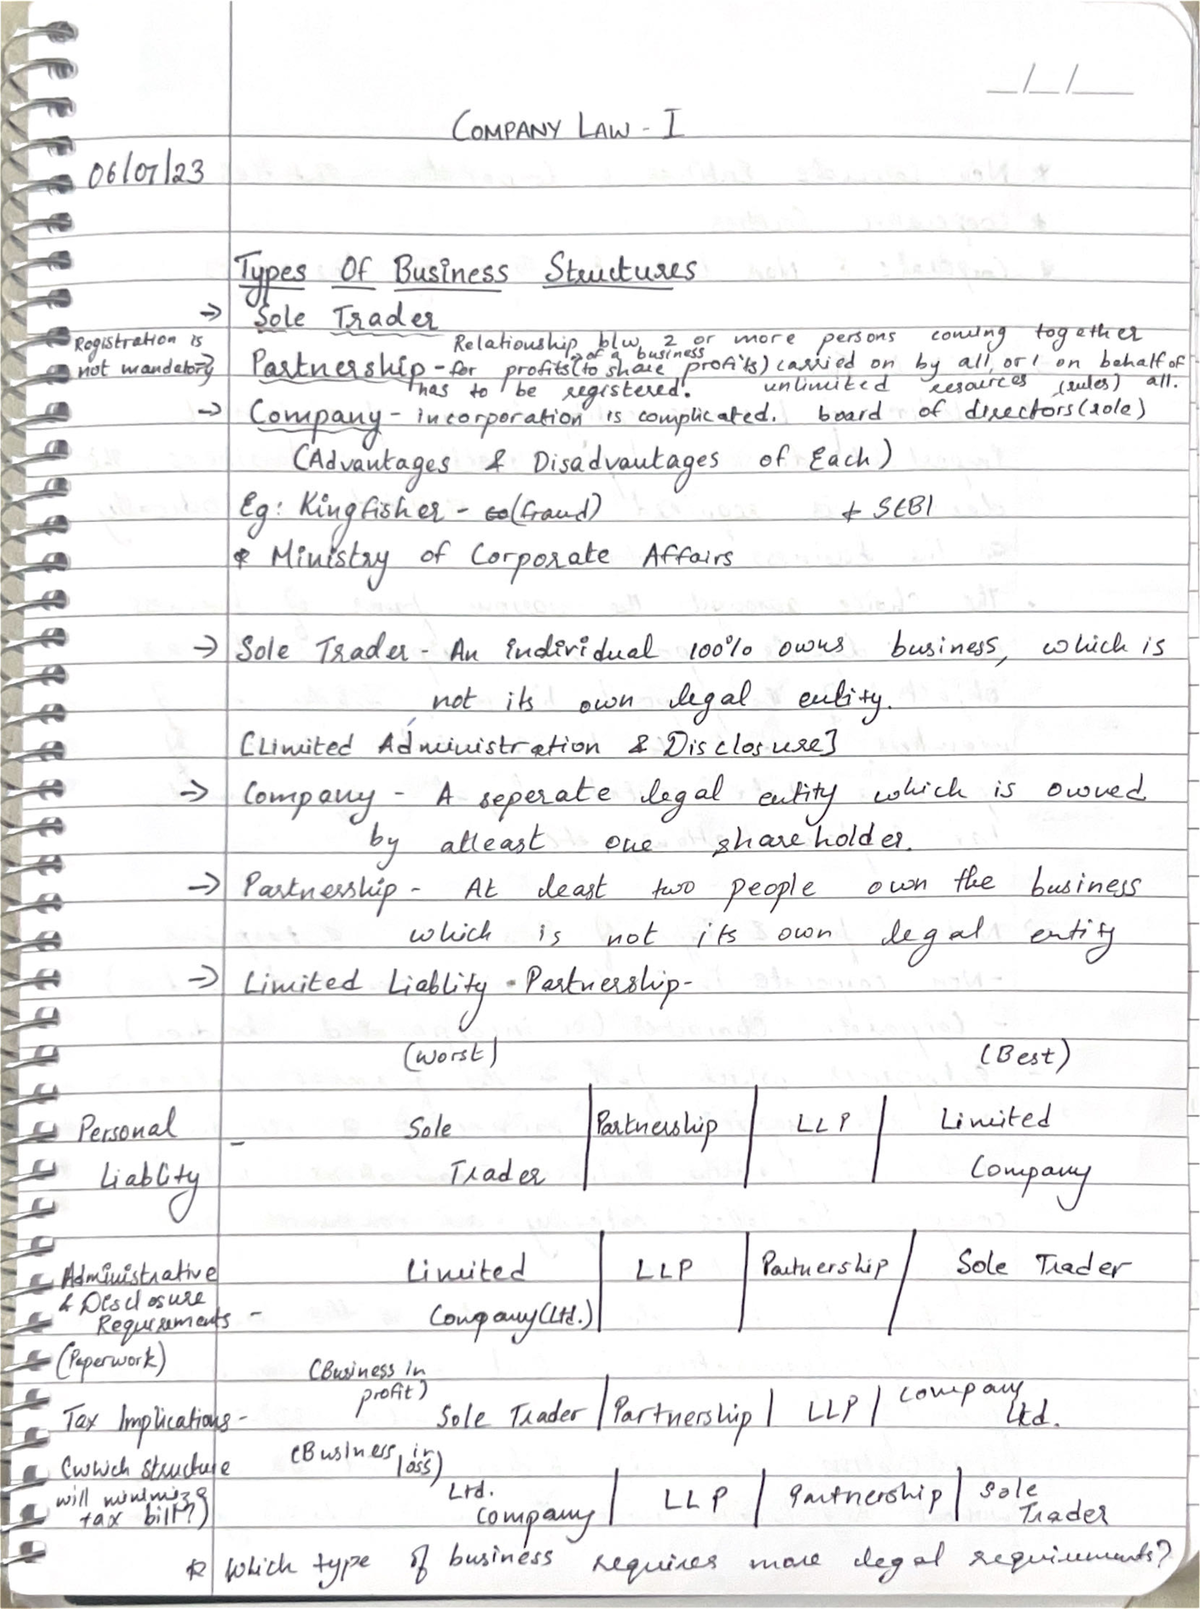 __/__/____
COMPANY LAW - I
06/07/23
Types Of Business Structures
→ Sole Trader
Registration is not mandatory
Relationship b/w 2 or more persons coming together
of a business
Partnership - for profits (to share profits) carried on by all, or 1 on behalf of all.
has to be registered. unlimited resources (rules)
→ Company - incorporation is complicated. board of directors (role)
(Advantages & Disadvantages of Each)
Eg: Kingfisher - (fraud) + SEBI
* Ministry of Corporate Affairs
→ Sole Trader - An individual 100% owns business, which is
not its own legal entity.
[Limited Administration & Disclosure]
→ Company - A seperate legal entity which is owned
by atleast one shareholder.
→ Partnership - At least two people own the business
which is not its own legal entity
→ Limited Liablity - Partnership -
(Worst) (Best)
Personal Liablity - Sole Trader | Partnership | LLP | Limited Company
Administrative & Disclosure Requirements - (Paperwork) Limited Company (Ltd.) | LLP | Partnership | Sole Trader
Tax Implications - (Business in profit) Sole Trader | Partnership | LLP | Company Ltd.
(which structure will minimize tax bill?) (Business in loss) Ltd. Company | LLP | Partnership | Sole Trader
* Which type of business requires more legal requirements?